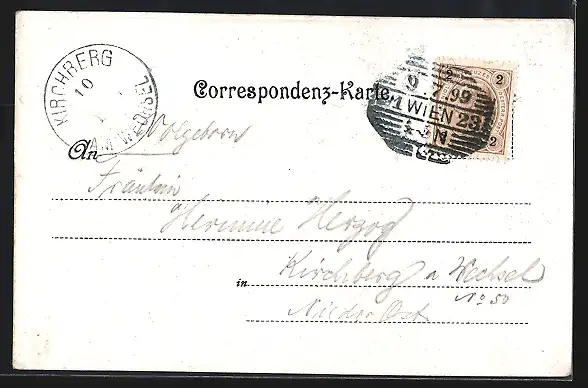 KIRCHBERG
10
AM WECHSEL
Correspondenz-Karte.
2 2
9. 7. 99
1/1 WIEN 23
N
2
An Wolgeborn
Fräulein
Hermine Herzog
in Kirchberg a Wechsel
No 50
Nieder Öst.